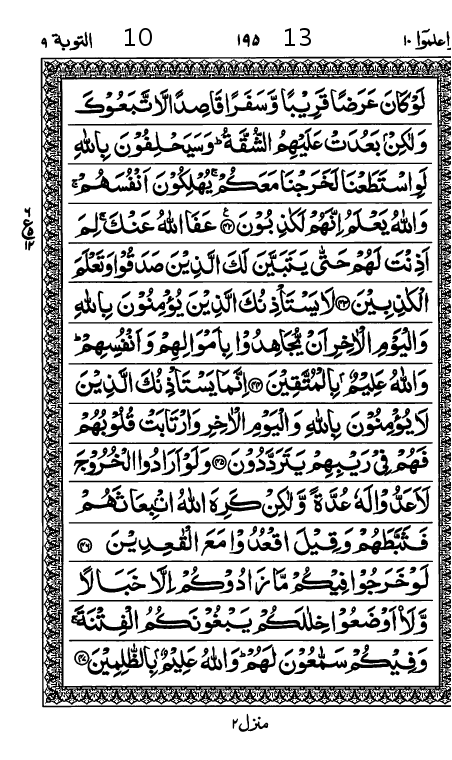 التوبة ٩ 10 ١٩٥ 13 واعلموا ١٠
لَوْ كَانَ عَرَضًا قَرِيْبًا وَّسَفَرًا قَاصِدًا لَّاتَّبَعُوْكَ
وَلٰكِنْۢ بَعُدَتْ عَلَيْهِمُ الشُّقَّةُ ؕ وَسَيَحْلِفُوْنَ بِاللّٰهِ
لَوِ اسْتَطَعْنَا لَخَرَجْنَا مَعَكُمْ ۚ يُهْلِكُوْنَ اَنْفُسَهُمْ ۚ
وَاللّٰهُ يَعْلَمُ اِنَّهُمْ لَكٰذِبُوْنَ ﴿۴۲﴾ عَفَا اللّٰهُ عَنْكَ ۚ لِمَ
اَذِنْتَ لَهُمْ حَتّٰى يَتَبَيَّنَ لَكَ الَّذِيْنَ صَدَقُوْا وَتَعْلَمَ
الْكٰذِبِيْنَ ﴿۴۳﴾ لَا يَسْتَاْذِنُكَ الَّذِيْنَ يُؤْمِنُوْنَ بِاللّٰهِ
وَالْيَوْمِ الْاٰخِرِ اَنْ يُّجَاهِدُوْا بِاَمْوَالِهِمْ وَاَنْفُسِهِمْ ؕ
وَاللّٰهُ عَلِيْمٌۢ بِالْمُتَّقِيْنَ ﴿۴۴﴾ اِنَّمَا يَسْتَاْذِنُكَ الَّذِيْنَ
لَا يُؤْمِنُوْنَ بِاللّٰهِ وَالْيَوْمِ الْاٰخِرِ وَارْتَابَتْ قُلُوْبُهُمْ
فَهُمْ فِيْ رَيْبِهِمْ يَتَرَدَّدُوْنَ ﴿۴۵﴾ وَلَوْ اَرَادُوا الْخُرُوْجَ
لَاَعَدُّوْا لَهٗ عُدَّةً وَّلٰكِنْ كَرِهَ اللّٰهُ انْۢبِعَاثَهُمْ
فَثَبَّطَهُمْ وَقِيْلَ اقْعُدُوْا مَعَ الْقٰعِدِيْنَ ﴿۴۶﴾
لَوْ خَرَجُوْا فِيْكُمْ مَّا زَادُوْكُمْ اِلَّا خَبَالًا
وَّلَا۟اَوْضَعُوْا خِلٰلَكُمْ يَبْغُوْنَكُمُ الْفِتْنَةَ ۚ
وَفِيْكُمْ سَمّٰعُوْنَ لَهُمْ ؕ وَاللّٰهُ عَلِيْمٌۢ بِالظّٰلِمِيْنَ ﴿۴۷﴾
منزل ٢